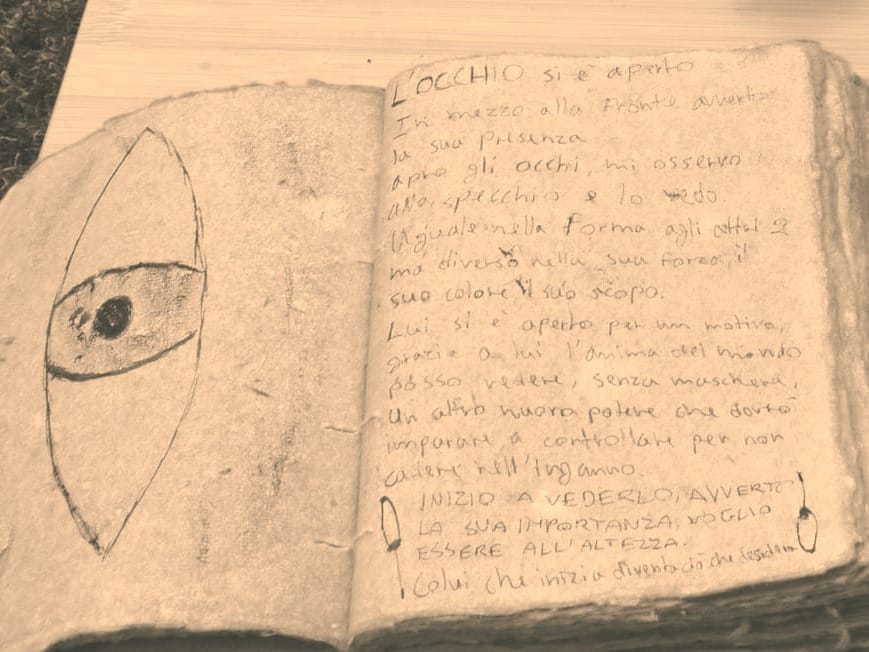 L'OCCHIO si è aperto
In mezzo alla fronte avverto
la sua presenza
apro gli occhi, mi osservo
allo specchio e lo vedo.
Uguale nella forma agli altri 2
ma diverso nella sua forza, il
suo colore, il suo scopo.
Lui si è aperto per un motivo,
grazie a lui l'anima del mondo
posso vedere, senza maschera,
un altro nuovo potere che dovrò
imparare a controllare per non
cadere nell'inganno.
INIZIO A VEDERLO, AVVERTO
LA SUA IMPORTANZA, VOGLIO
ESSERE ALL'ALTEZZA.
Colui che inizia diventa ciò che desidera